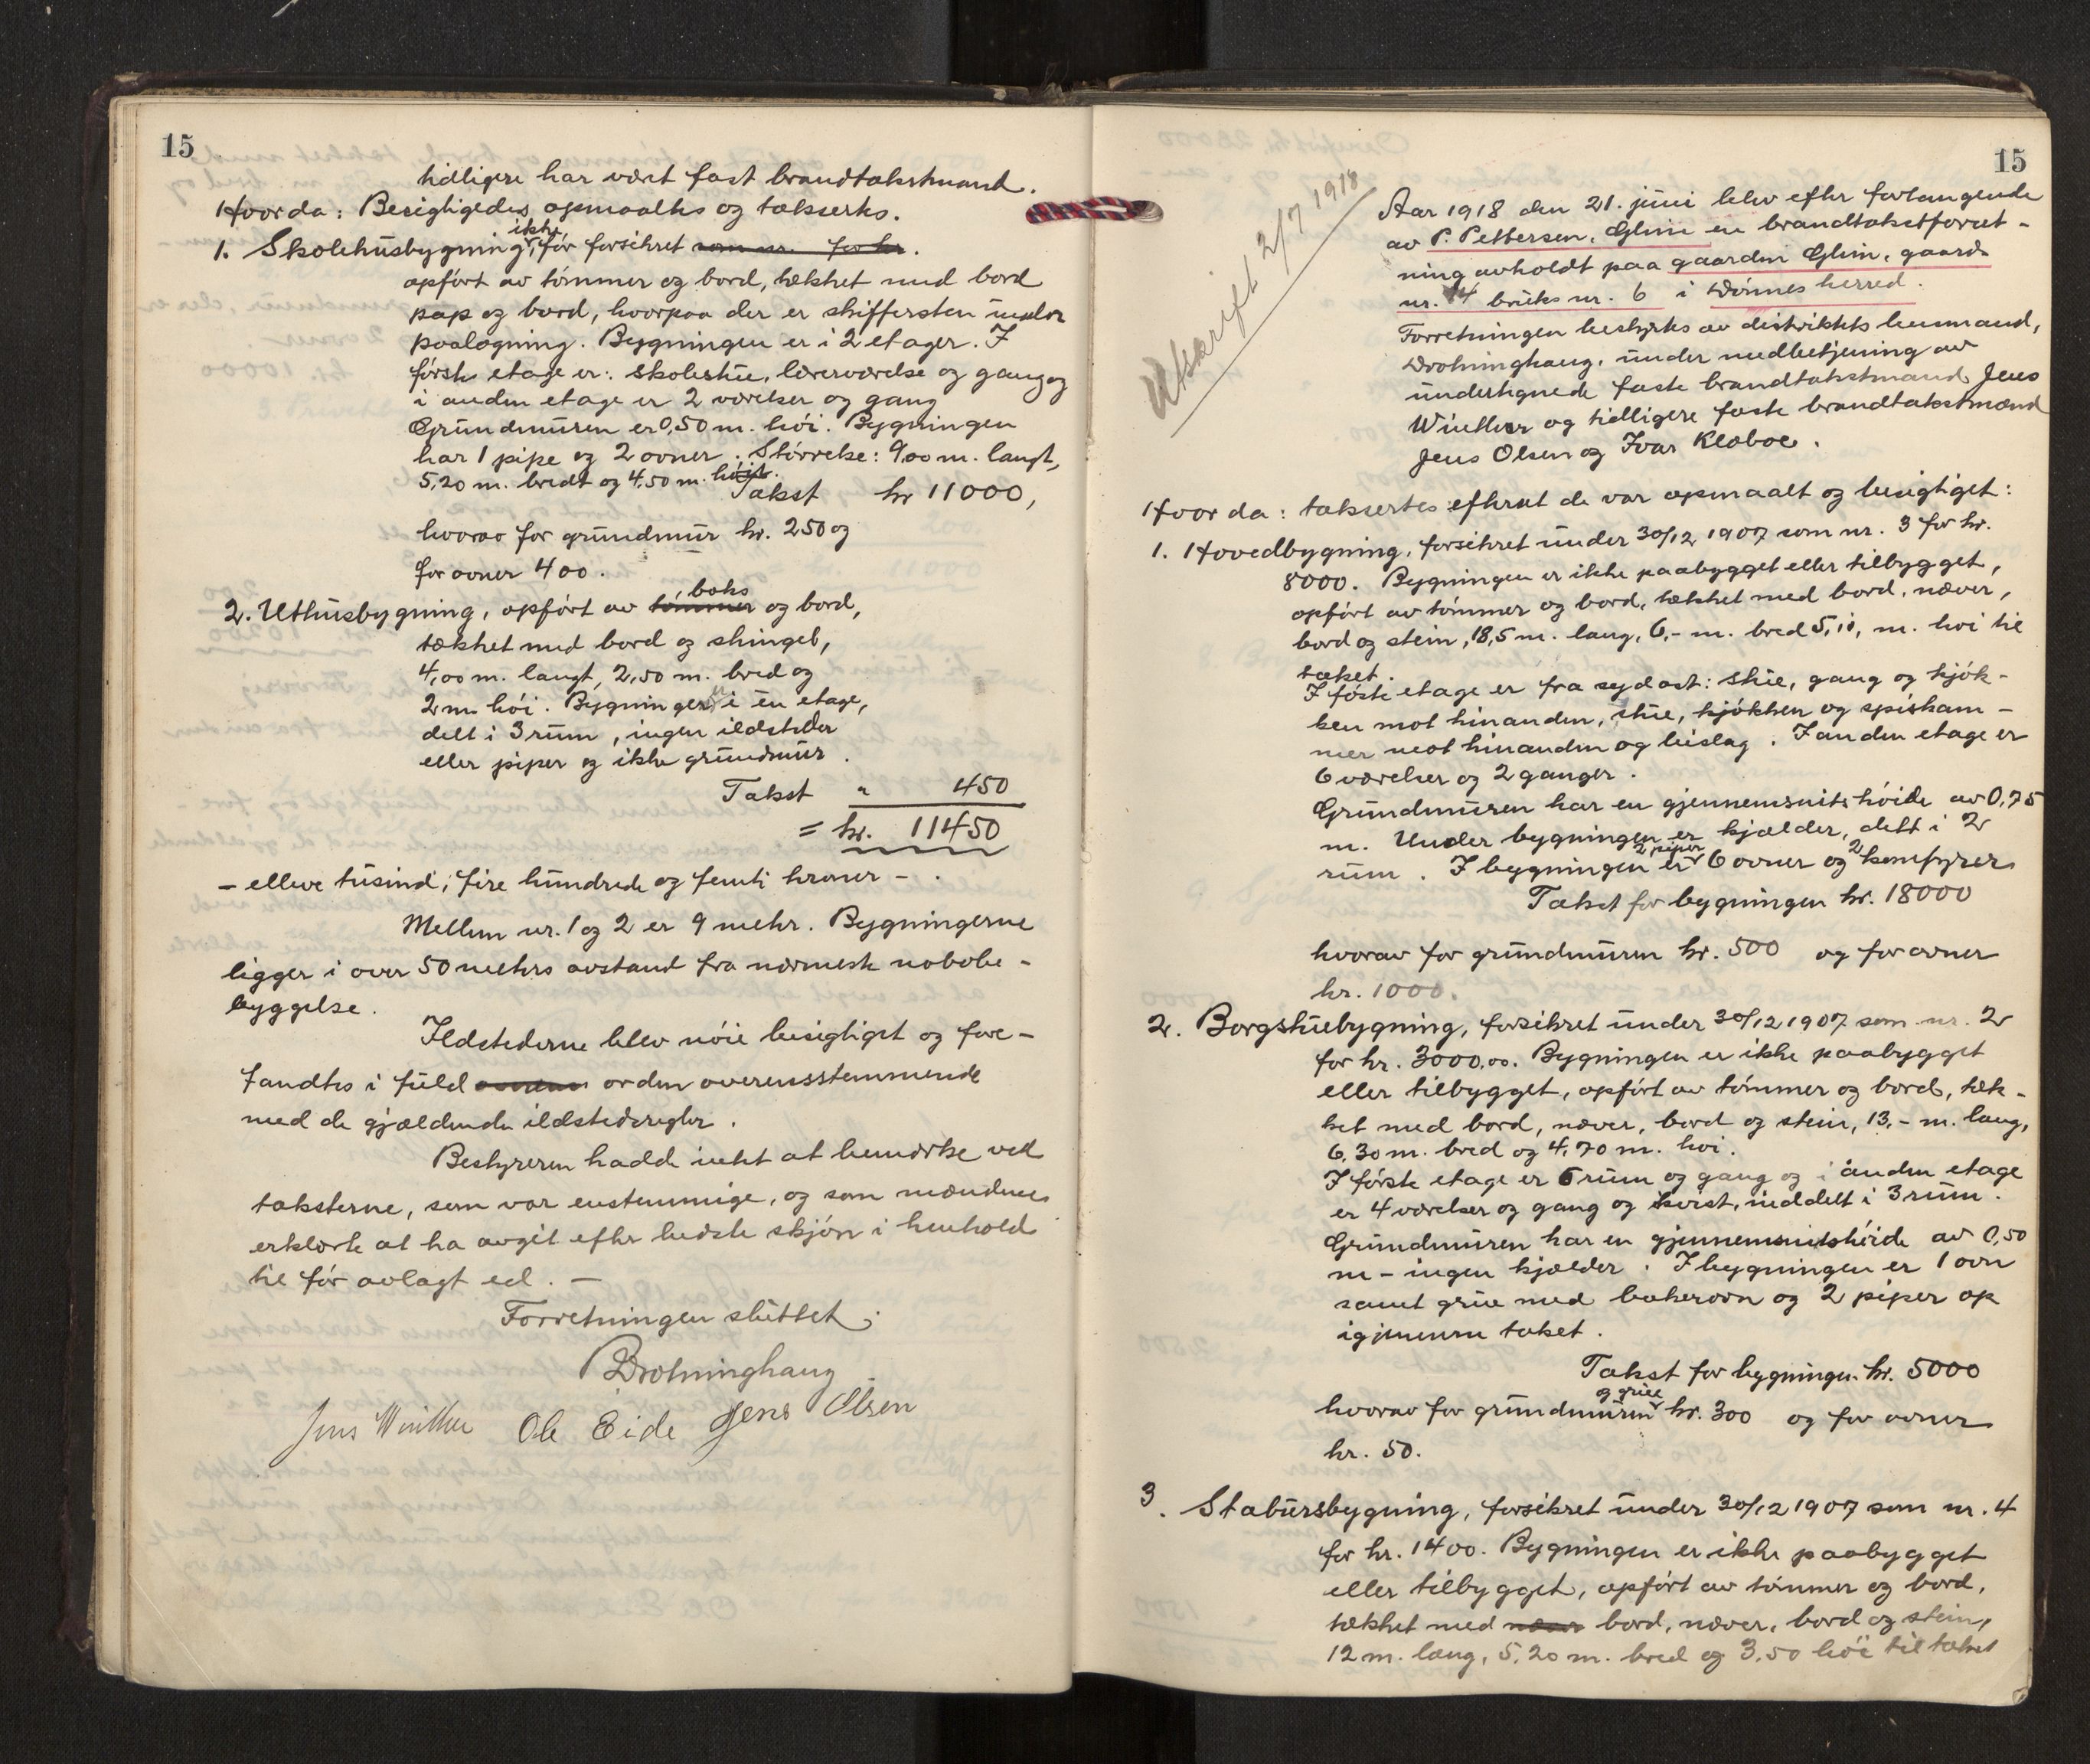 15
tidligere har været fast brandtakstmand.
Hvorda: Besigtigedes, opmaaltes og takserte.
1. Skolehusbygning, ikke før forsikret som nr. for kr.
opført av tømmer og bord, tækket med bord
pap og bord, hvorpaa der er skiffersten under
paalægning. Bygningen er i 2 etager. I
første etage er: skolestue, lærerværelse og gang og
i anden etage er 2 værelser og gang
Grundmuren er 0,50 m. høi. Bygningen
har 1 pipe og 2 ovner. Størrelse: 9,00 m. langt,
5,20 m. bredt og 4,50 m. høit.
Takst kr 11000,
hvorav for grundmur kr. 250 og
for ovner 400.
2. Uthusbygning, opført av tømmer boks og bord,
tækket med bord og shingel,
4,00 m. langt, 2,50 m. bred og
2 m. høi. Bygningen er i en etage,
delt i 3 rum, ingen ildsteder
eller piper og ikke grundmur.
Takst " 450
= kr. 11450
- elleve tusind, fire hundrede og femti kroner -.
Mellem nr. 1 og 2 er 9 meter. Bygningerne
ligger i over 50 meters avstand fra nærmeste nabobe-
byggelse.
Ildstederne blev nøie besigtiget og fore-
fandtes i fuld orden overensstemmende
med de gjældende ildstedsregler.
Bestyreren hadde intet at bemerke ved
taksterne, som var enstemmige, og som mændene
erklærte at ha avgit efter bedste skjøn i henhold
til før avlagt ed. -
Forretningen sluttet;
Drotninghaug
Jens Winther Ole Eide Jens Olsen
15
Utskrift 2/7 1918
Aar 1918 den 21. juni blev efter forlangende
av P. Pettersen, Glein en brandtakstforret-
ning avholdt paa gaarden Glein, gaards
nr. 14 bruks nr. 6 i Dønnes herred.
Forretningen bestyrtes av distriktets lensmand,
Drotninghaug, under medbetjening av
undertegnede faste brandtakstmand Jens
Winther og tidligere faste brandtakstmænd
Jens Olsen og Ivar Klæboe.
Hvor da: taksertes efterat de var opmaalt og besigtiget:
1. Hovedbygning, forsikret under 30/12 1907 som nr. 3 for kr.
8000. Bygningen er ikke paabygget eller tilbygget,
opført av tømmer og bord, tækket med bord, næver,
bord og stein, 18,5 m. lang, 6,- m. bred 5,10, m. høi til
taket.
I første etage er fra sydost: stue, gang og kjøk-
ken mot hinanden, stue, kjøkken og spiskam-
mer mot hinanden og bislag. I anden etage er
6 værelser og 2 ganger.
Grundmuren har en gjennemsnitshøide av 0,75
m. Under bygningen er kjælder, delt i 2
rum. I bygningen er 2 piper 6 ovner og 2 komfyrer
Takst for bygningen kr. 18000
hvorav for grundmuren kr. 500 og for ovner
kr. 1000.
2. Borgstuebygning, forsikret under 30/12 1907 som nr. 2
for kr. 3000,00. Bygningen er ikke paabygget
eller tilbygget, opført av tømmer og bord, tæk-
ket med bord, næver, bord og stein, 13,- m. lang,
6,30 m. bred og 4,70 m. høi.
I første etage er 5 rum og gang og i anden etage
er 4 værelser og gang og kvist, inddelt i 3 rum.
Grundmuren har en gjennemsnitshøide av 0,50
m - ingen kjælder. I bygningen er 1 ovn
samt grue med bakerovn og 2 piper op
igjennem taket.
Takst for bygningen kr. 5000
hvorav for grundmuren og grue kr. 300 og for ovner
kr. 50.
3. Stabursbygning, forsikret under 30/12 1907 som nr. 4
for kr. 1400. Bygningen er ikke paabygget
eller tilbygget, opført av tømmer og bord,
tækket med næver bord, næver, bord og stein,
12 m. lang, 5,20 m. bred og 3,50 høi til taket